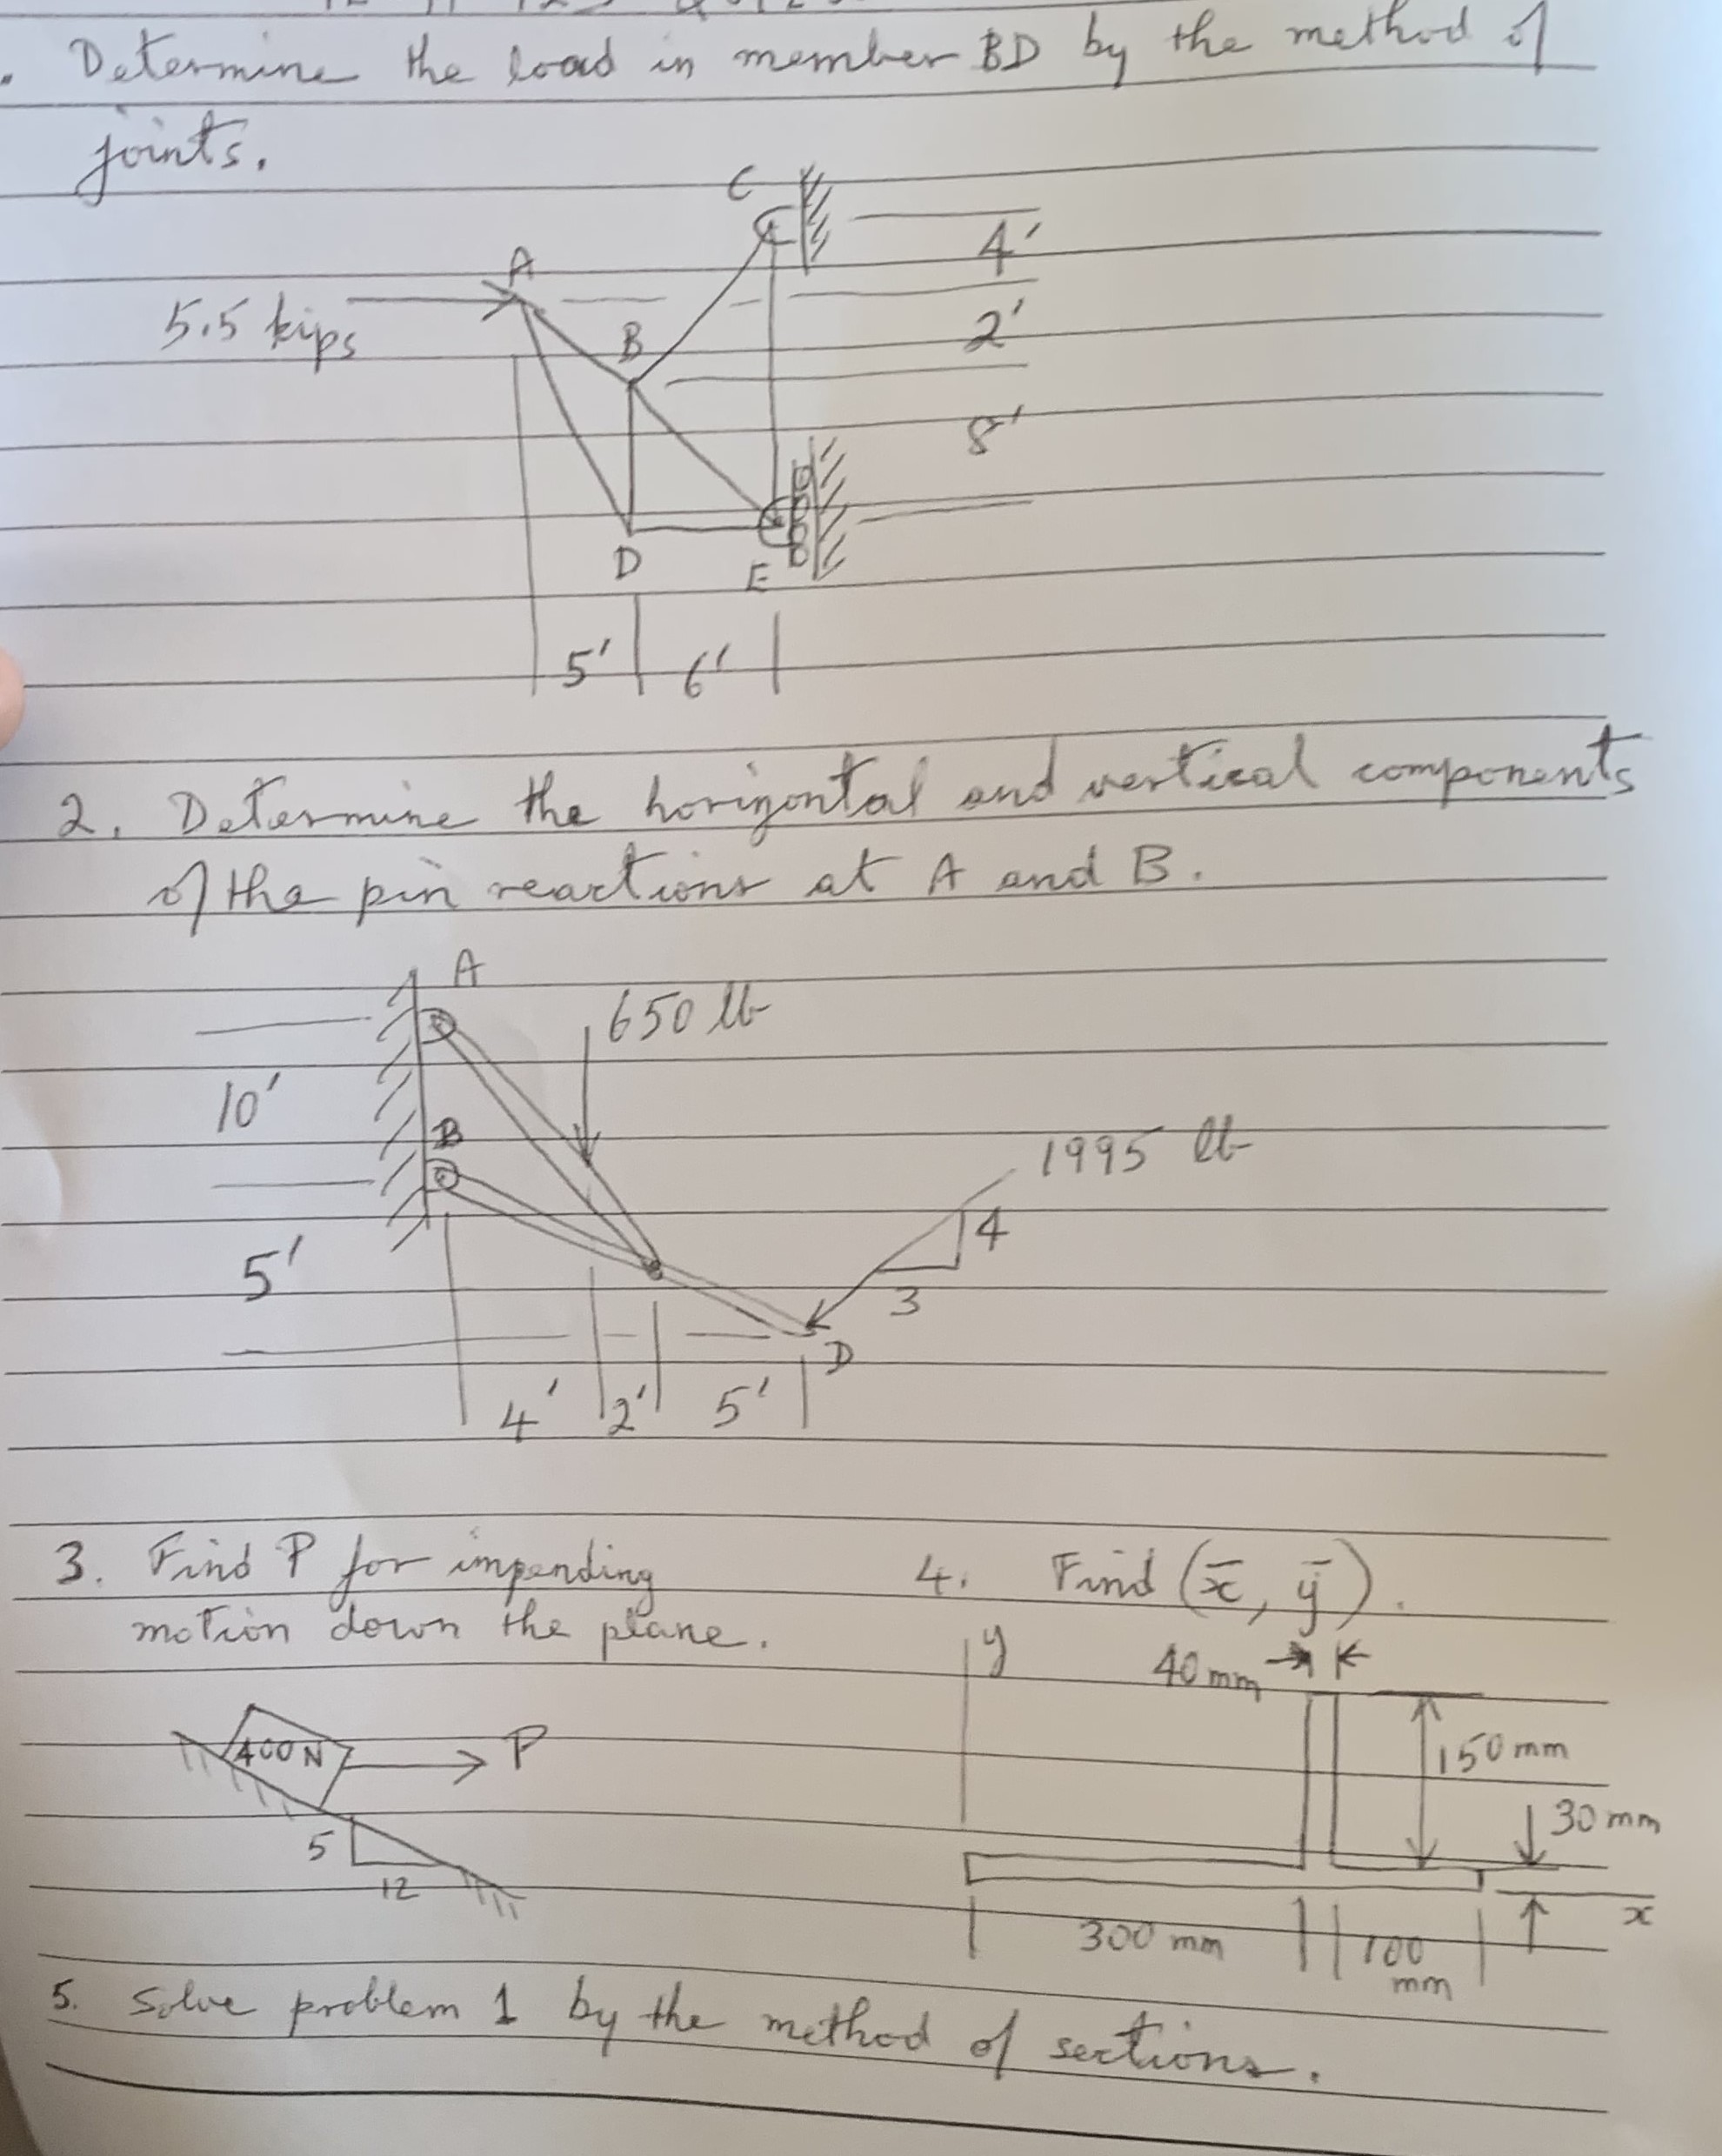 . Determine the load in member BD by the method of
joints.
C
4'
A
5.5 kips
2'
B
8'
D
E
5'
6'
2. Determine the horizontal and vertical components
of the pin reactions at A and B.
A
650 lb
10'
B
1995 lb
4
5'
3
D
4'
2'
5'
3. Find P for impending
motion down the plane.
400N
P
5
12
4. Find (x̄, ȳ).
y
40 mm
150 mm
30 mm
x
300 mm
100
mm
5. Solve problem 1 by the method of sections.